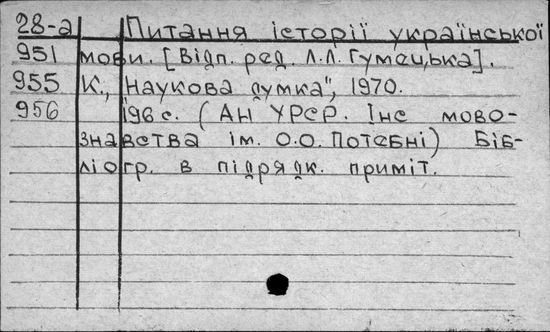 28-а Питання історії української
951 мови. [Відп. ред. Л.Л. Гумецька].
955 К., "Наукова думка", 1970.
956 196 с. (АН УРСР. Ін-т мово-
знавства ім. О.О. Потебні) Біб-
ліогр. в підрядк. приміт.